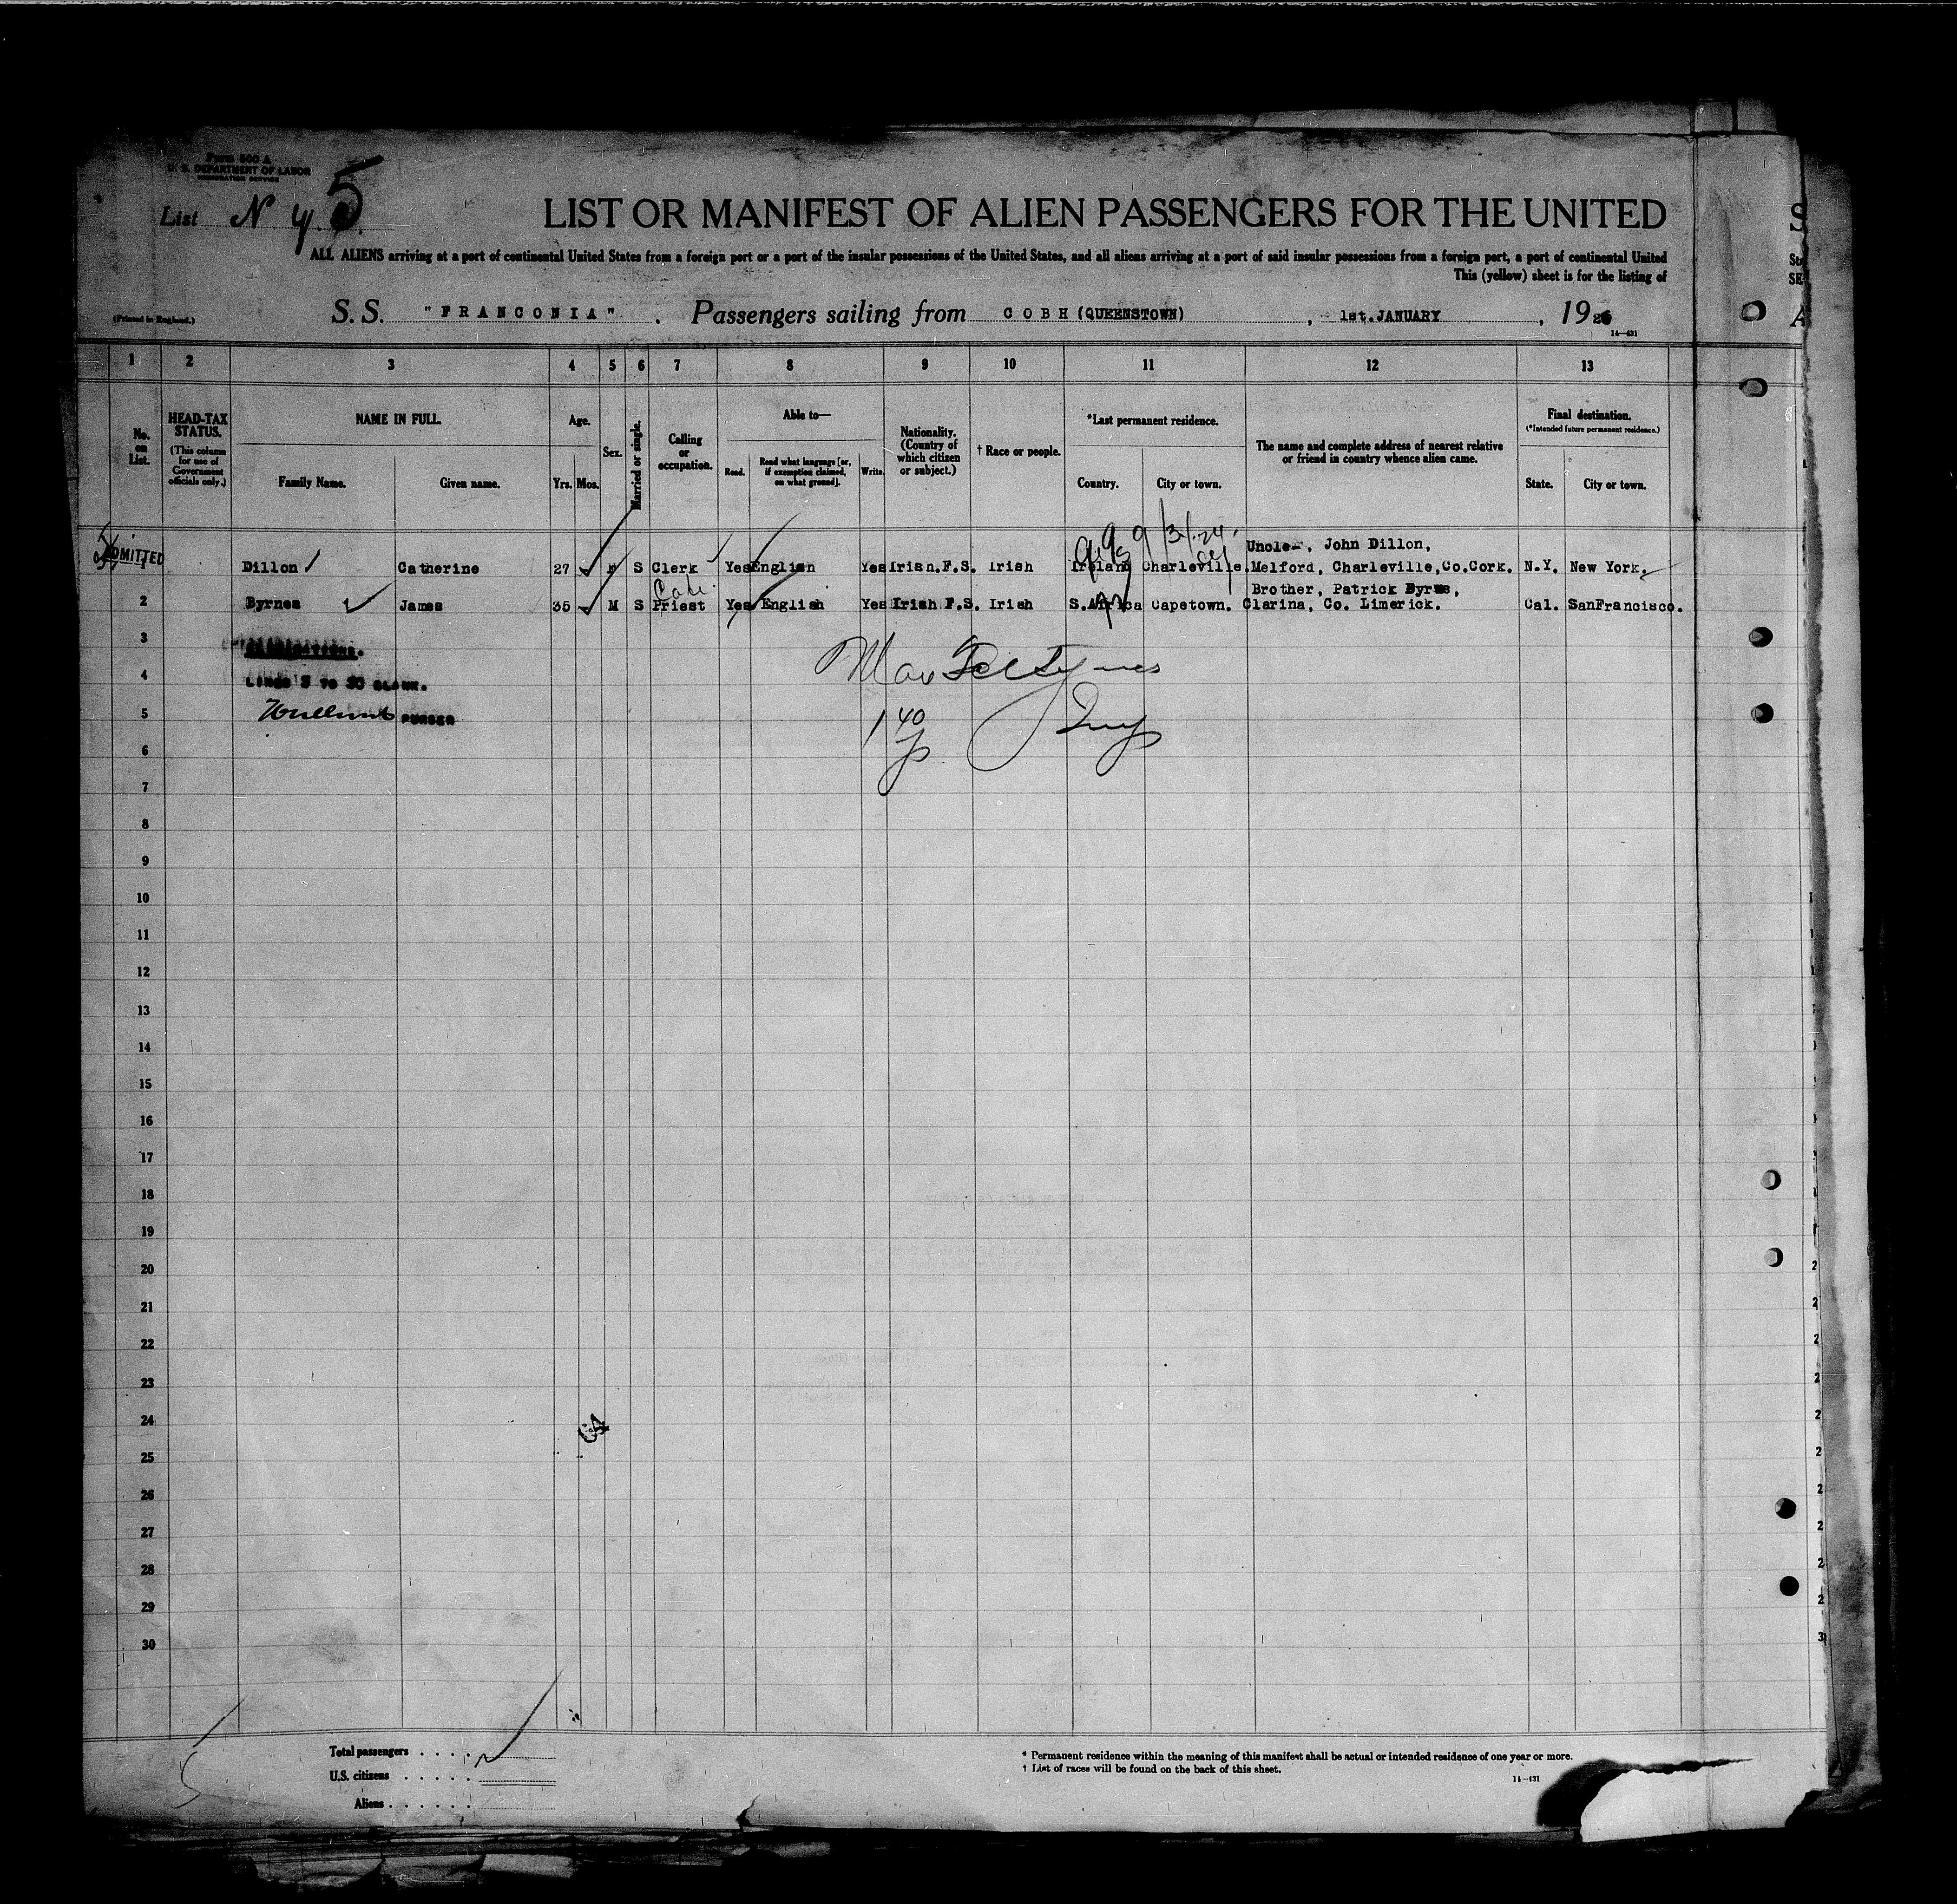 Form 500 A
U. S. DEPARTMENT OF LABOR
IMMIGRATION SERVICE
List N Y. 5
LIST OR MANIFEST OF ALIEN PASSENGERS FOR THE UNITED
ALL ALIENS arriving at a port of continental United States from a foreign port or a port of the insular possessions of the United States, and all aliens arriving at a port of said insular possessions from a foreign port, a port of continental United
This (yellow) sheet is for the listing of
(Printed in England.)
S. S. "FRANCONIA" . Passengers sailing from COBH (QUEENSTOWN) , 1st. JANUARY , 1926
14—431
1 2 3 4 5 6 7 8 9 10 11 12 13
No. on List.
HEAD-TAX STATUS.
(This column for use of Government officials only.)
NAME IN FULL.
Family Name. Given name.
Age.
Yrs. Mos.
Sex.
Married or single.
Calling or occupation.
Able to—
Read. Read what language [or, if exemption claimed, on what ground]. Write.
Nationality. (Country of which citizen or subject.)
† Race or people.
*Last permanent residence.
Country. City or town.
The name and complete address of nearest relative or friend in country whence alien came.
Final destination.
(*Intended future permanent residence.)
State. City or town.
ADMITTED
Uncle-, John Dillon,
1 Dillon Catherine 27 F S Clerk Yes English Yes Irish.F.S. Irish Ireland Charleville. Melford, Charleville,Co.Cork. N.Y. New York.
Brother, Patrick Byrnes,
2 Byrnes James 35 M S Priest Yes English Yes Irish F.S. Irish S.Africa Capetown. Clarina, Co. Limerick. Cal. SanFrancisco.
3
4 LINES 3 TO 30 BLANK.
5 PURSER
6
7
8
9
10
11
12
13
14
15
16
17
18
19
20
21
22
23
24
25
26
27
28
29
30
Total passengers . . . .
U.S. citizens . . . . .
Aliens . . . . . .
* Permanent residence within the meaning of this manifest shall be actual or intended residence of one year or more.
† List of races will be found on the back of this sheet.
14—431